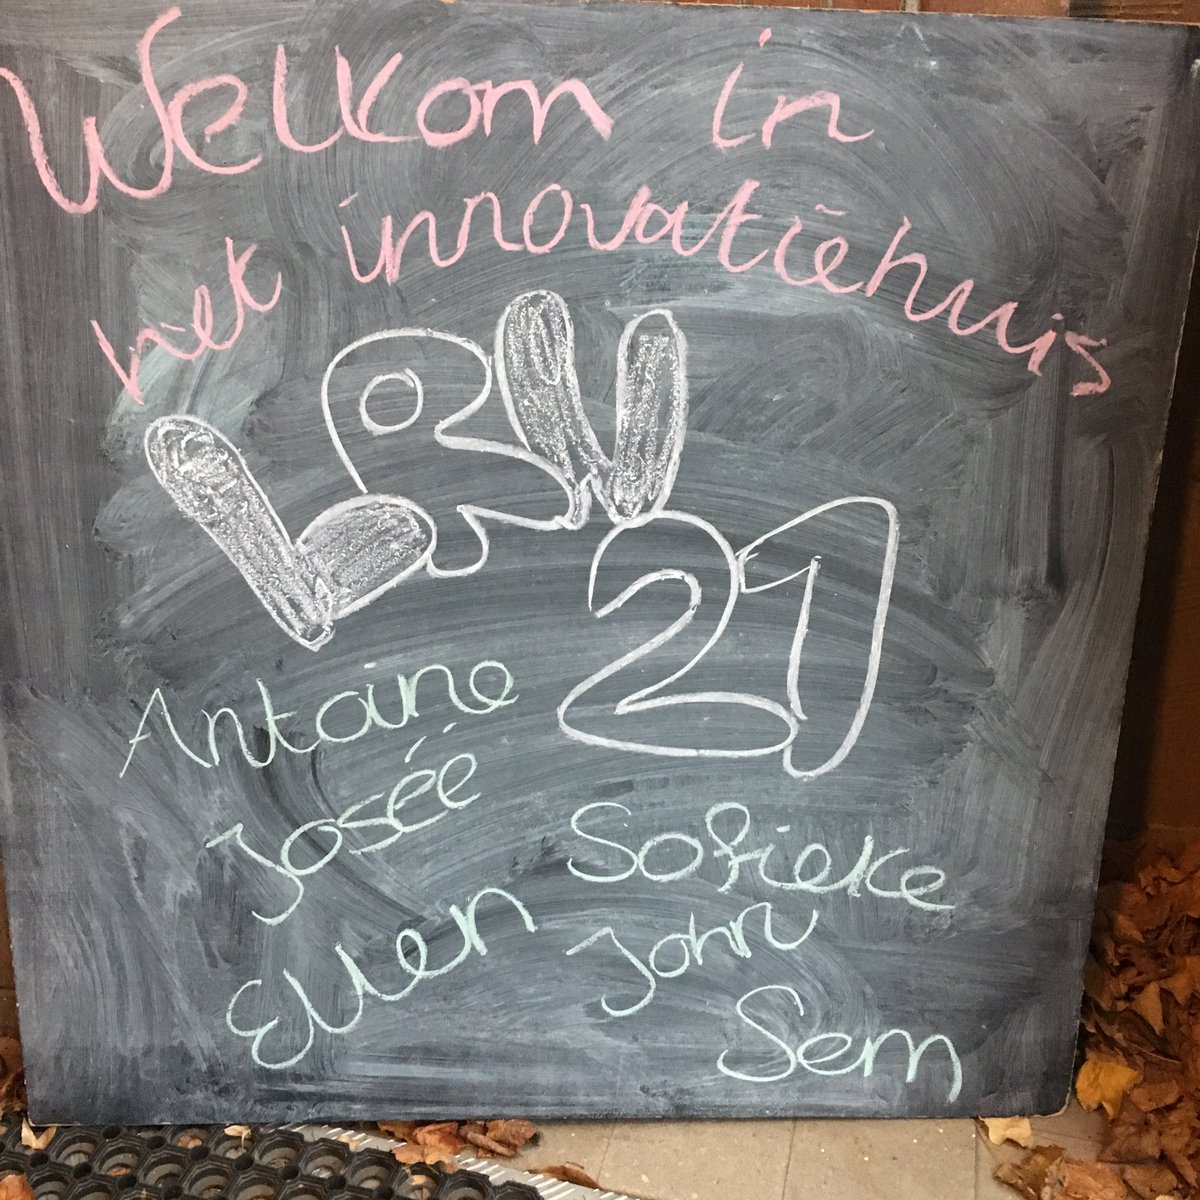 Welkom in
het innovatiehuis
LRN
21
Antoine
Josée
Ellen
Sofieke
John
Sem